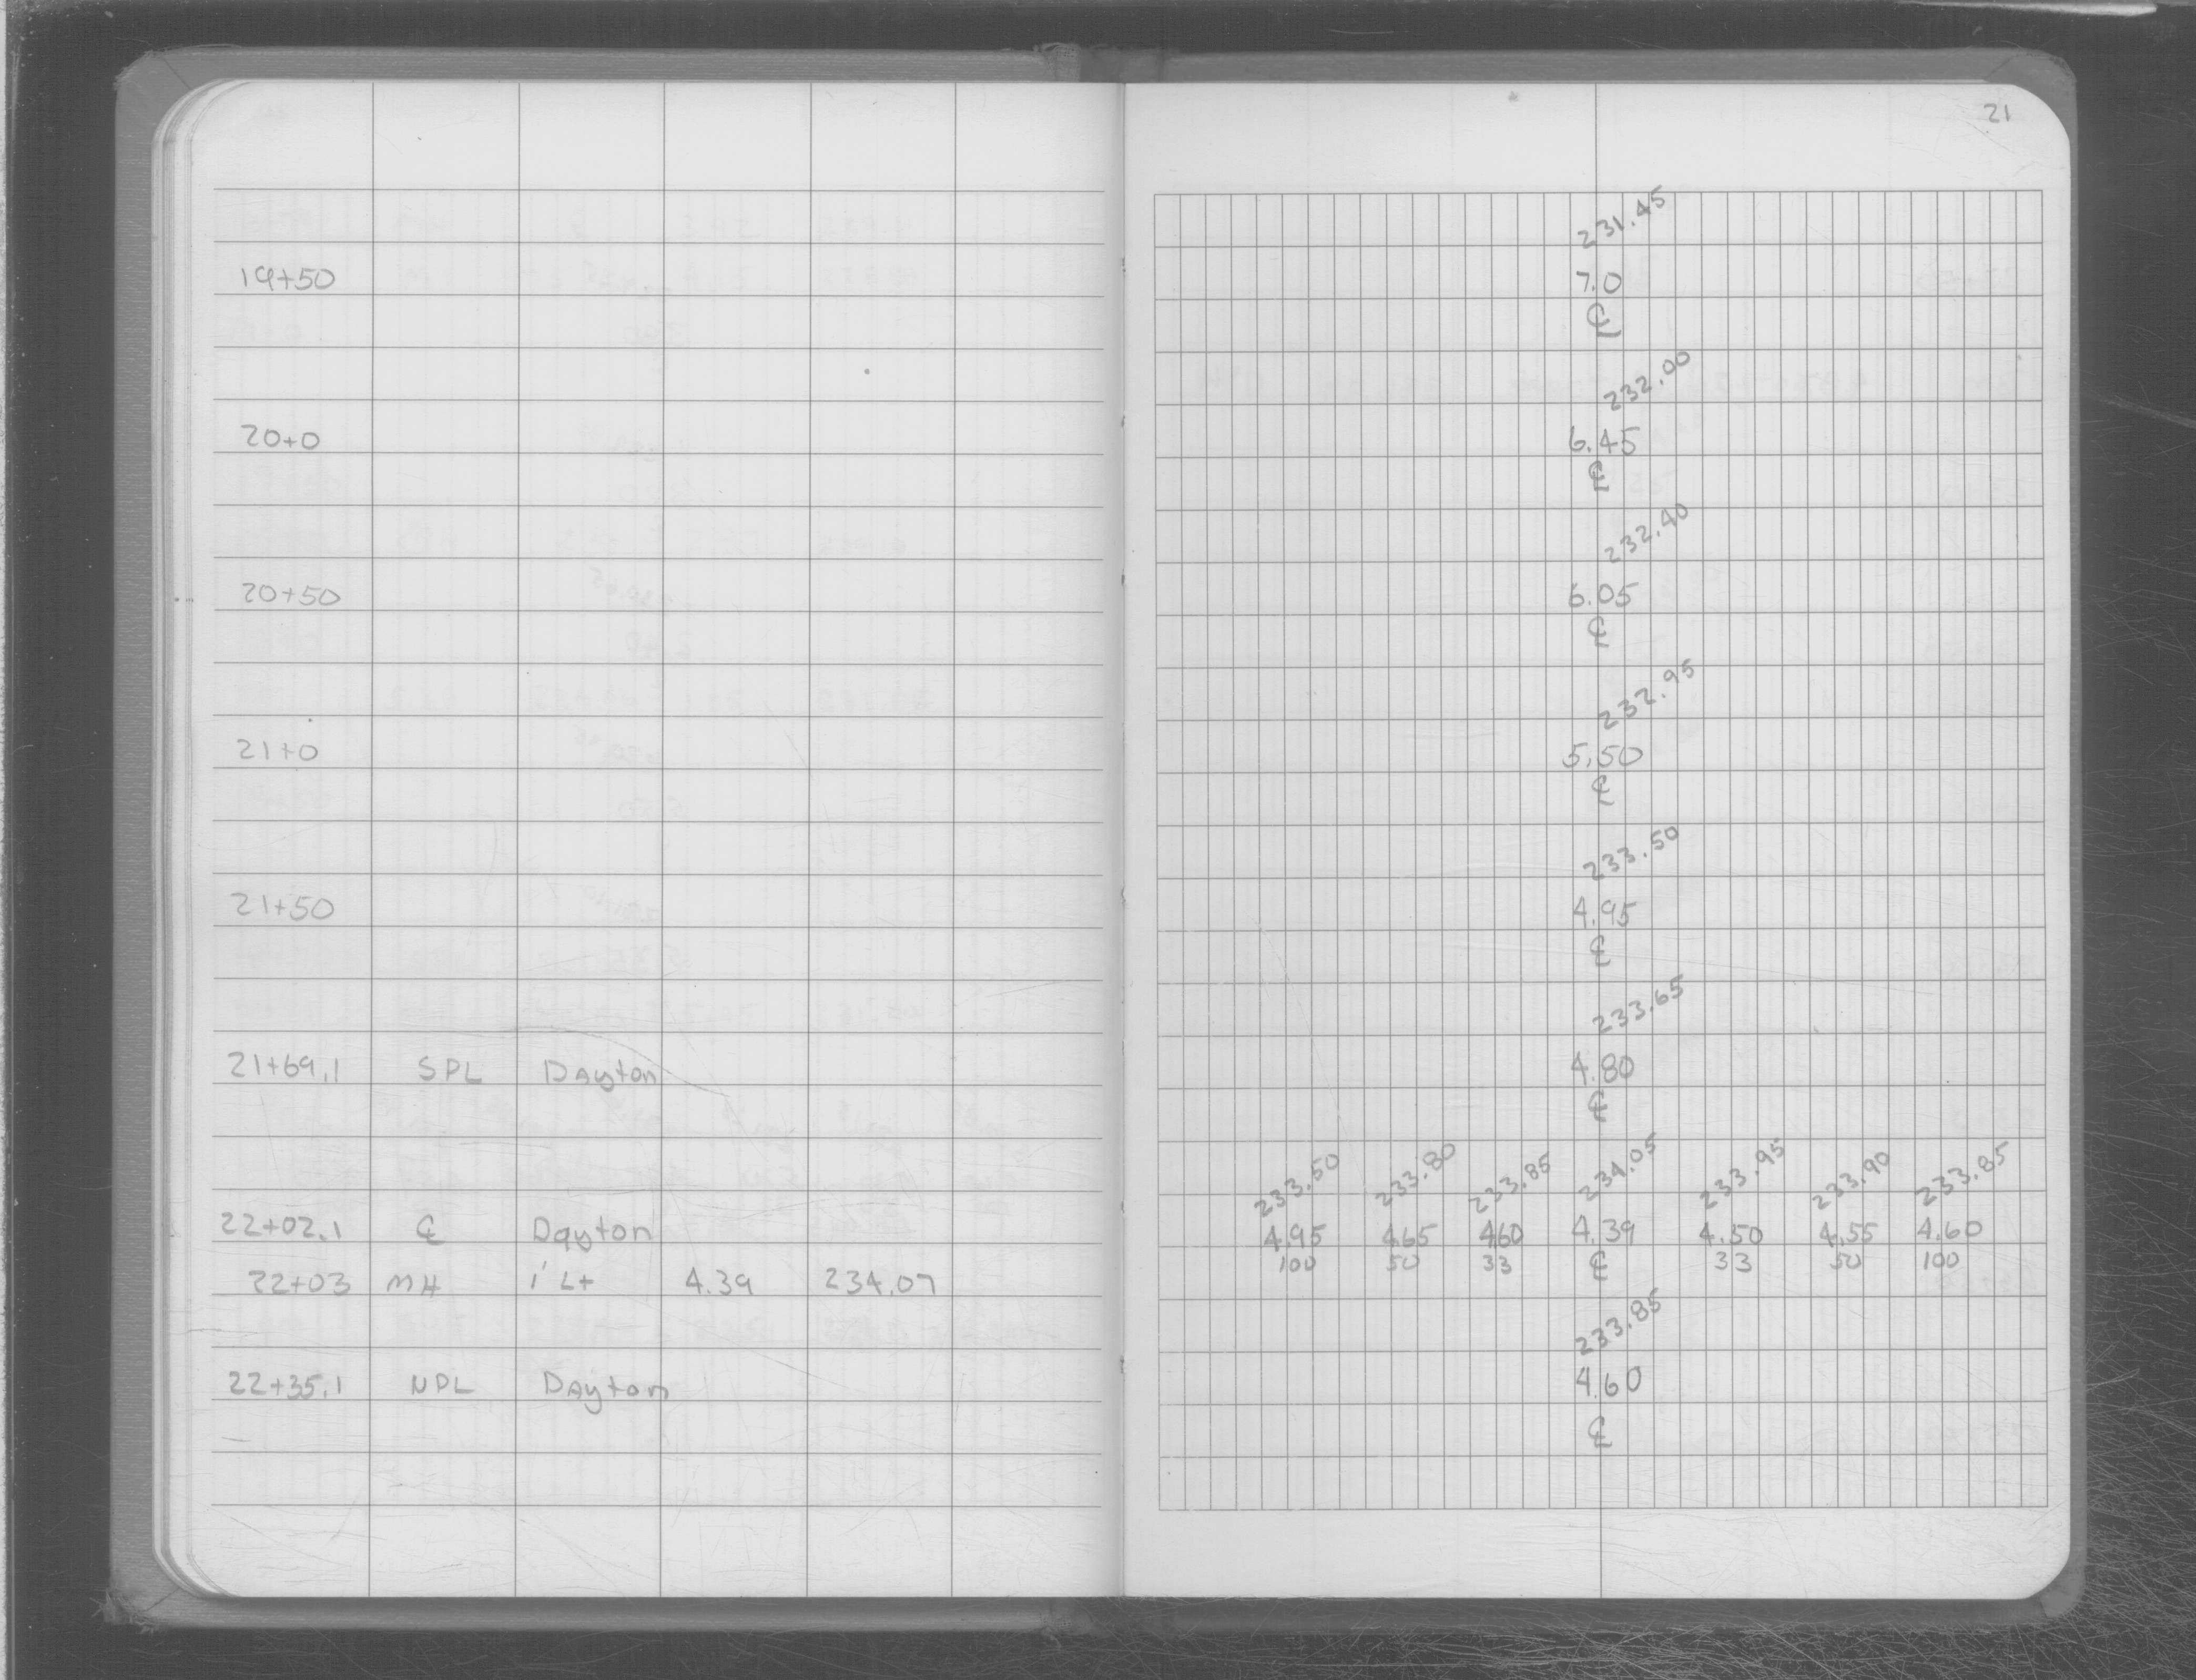 21
231.45
19+50 7.0
℄
232.00
20+0 6.45
℄
232.40
20+50 6.05
℄
232.95
21+0 5.50
℄
233.50
21+50 4.95
℄
233.65
21+69.1 SPL Dayton 4.80
℄
233.50 233.80 233.85 234.05 233.95 233.90 233.85
22+02.1 ℄ Dayton 4.95 4.65 4.60 4.39 4.50 4.55 4.60
100 50 33 ℄ 33 50 100
22+03 MH 1' Lt 4.39 234.07
233.85
22+35.1 NPL Dayton 4.60
℄